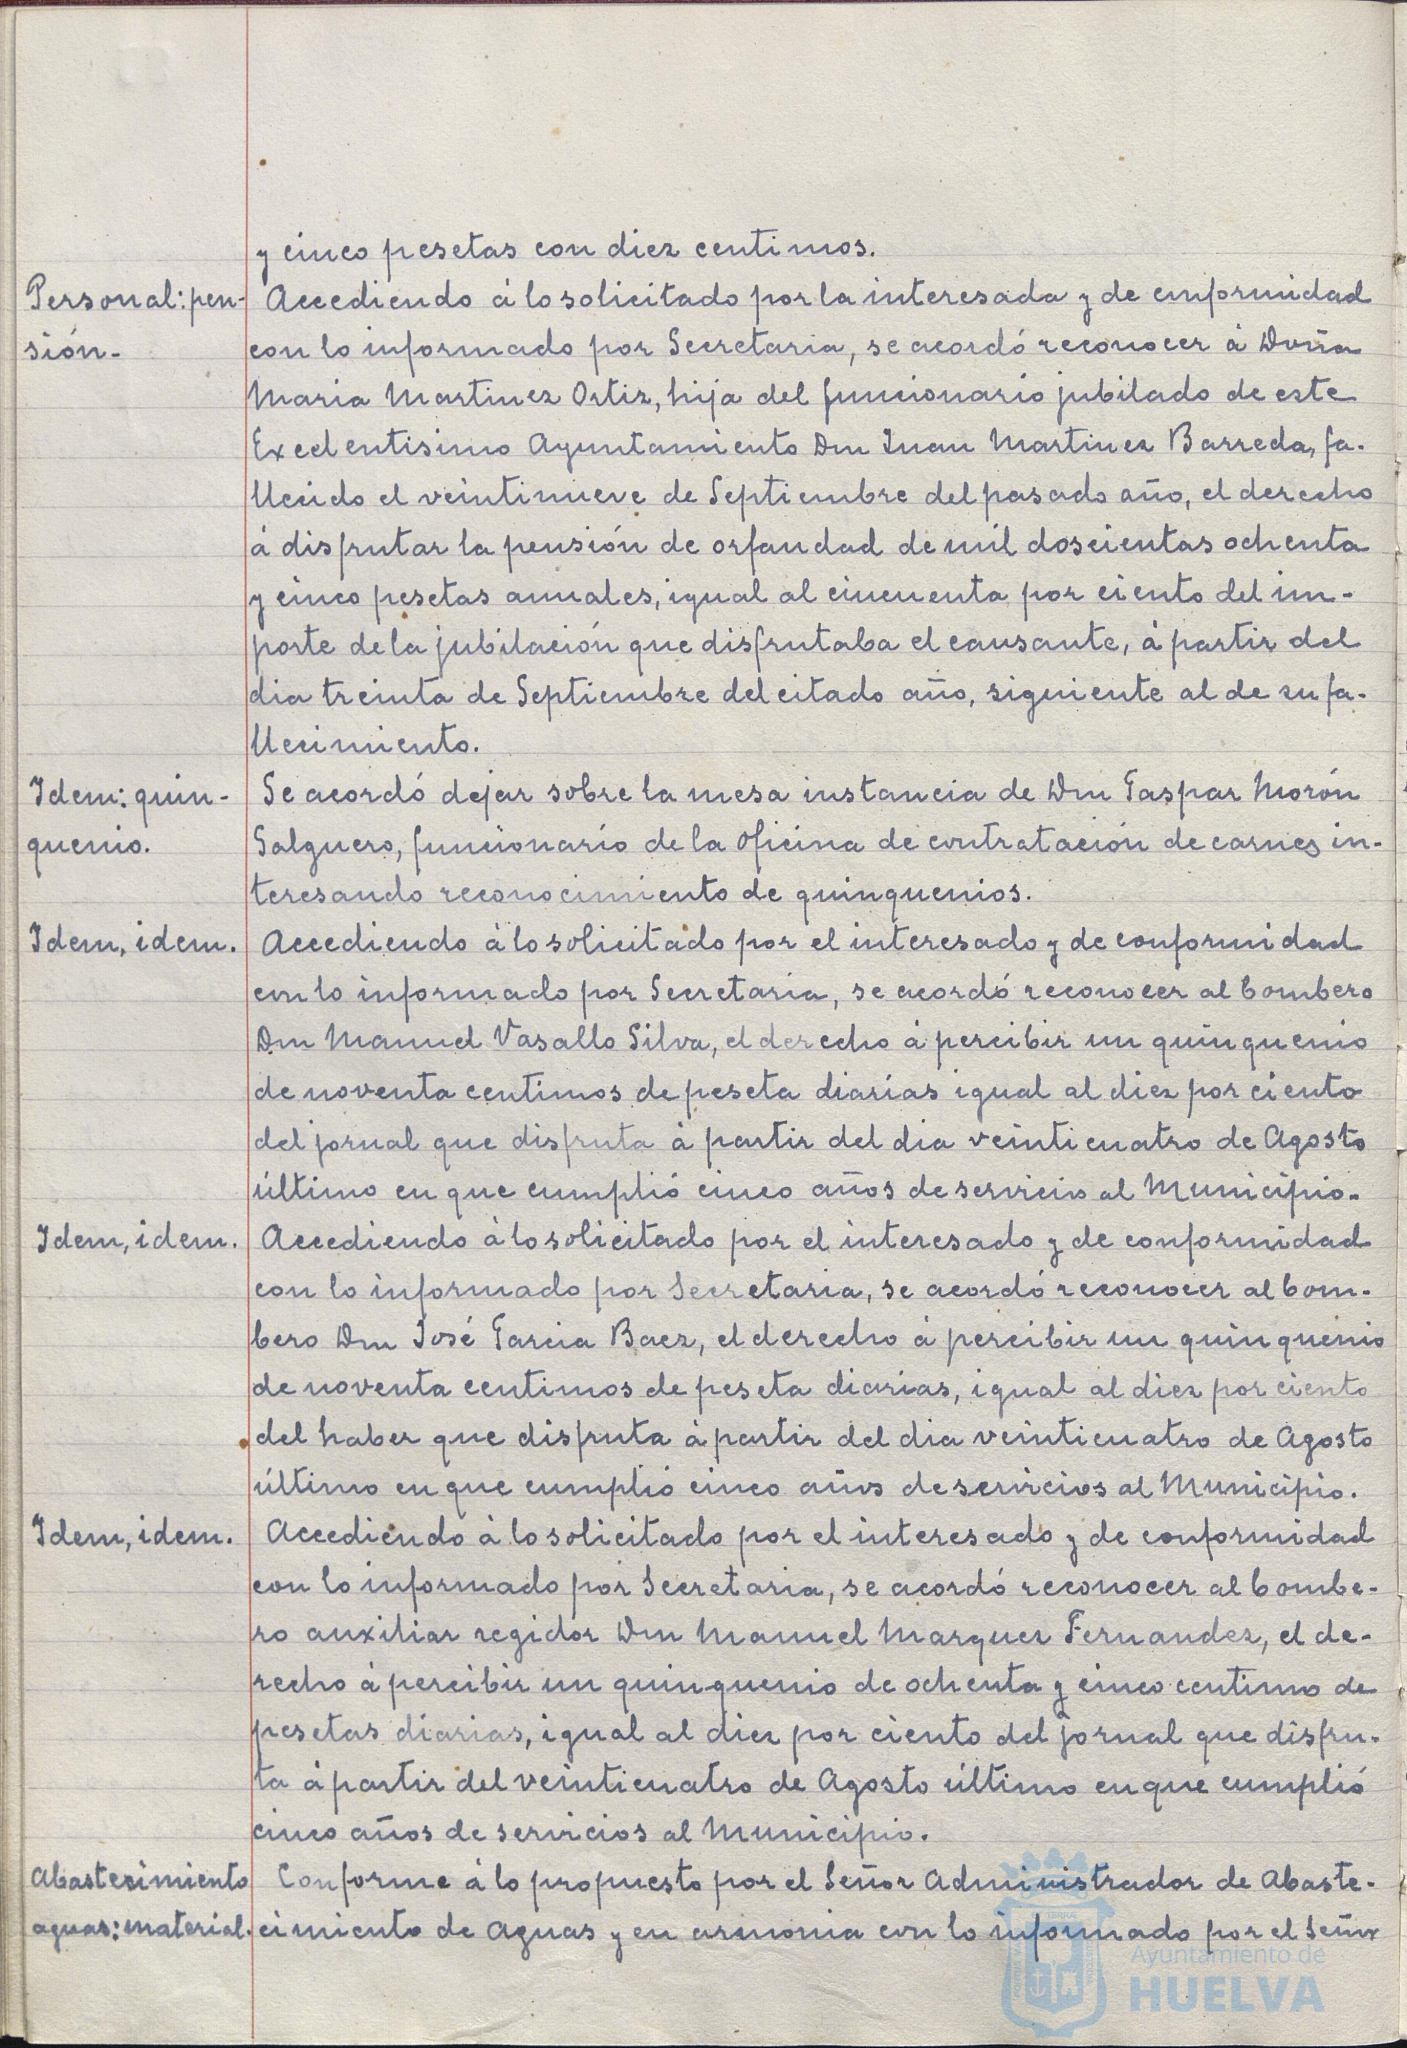 y cinco pesetas con diez centimos.
Personal: pen- Accediendo á lo solicitado por la interesada y de conformidad
sión- con lo informado por Secretaria, se acordó reconocer á Doña
Maria Martinez Ortiz, hija del funcionario jubilado de este
Excelentisimo Ayuntamiento Don Juan Martinez Barreda, fa-
llecido el veintinueve de Septiembre del pasado año, el derecho
á disfrutar la pensión de orfandad de mil doscientas ochenta
y cinco pesetas anuales, igual al cincuenta por ciento del im-
porte de la jubilación que disfrutaba el causante, á partir del
dia treinta de Septiembre del citado año, siguiente al de su fa-
llecimiento.
Idem: quin- Se acordó dejar sobre la mesa instancia de Don Gaspar Morón
quenio. Salguero, funcionario de la oficina de contratación de carnes in-
teresando reconocimiento de quinquenios.
Idem, idem. Accediendo á lo solicitado por el interesado y de conformidad
con lo informado por Secretaria, se acordó reconocer al bombero
Don Manuel Vasallo Silva, el derecho á percibir un quinquenio
de noventa centimos de peseta diarias igual al diez por ciento
del jornal que disfruta á partir del dia veinticuatro de Agosto
último en que cumplió cinco años de servicios al Municipio.
Idem, idem. Accediendo á lo solicitado por el interesado y de conformidad
con lo informado por Secretaria, se acordó reconocer al bom-
bero Don José Garcia Baez, el derecho á percibir un quinquenio
de noventa centimos de peseta diarias, igual al diez por ciento
del haber que disfruta á partir del dia veinticuatro de Agosto
último en que cumplió cinco años de servicios al Municipio.
Idem, idem. Accediendo á lo solicitado por el interesado y de conformidad
con lo informado por Secretaria, se acordó reconocer al bombe-
ro auxiliar regidor Don Manuel Marquez Fernandez, el de-
recho á percibir un quinquenio de ochenta y cinco centimo de
pesetas diarias, igual al diez por ciento del jornal que disfru-
ta á partir del veinticuatro de Agosto último en que cumplió
cinco años de servicios al Municipio.
Abastecimiento Conforme á lo propuesto por el Señor Administrador de Abaste-
aguas: material. cimiento de Aguas y en armonia con lo informado por el Señor
Ayuntamiento de
HUELVA